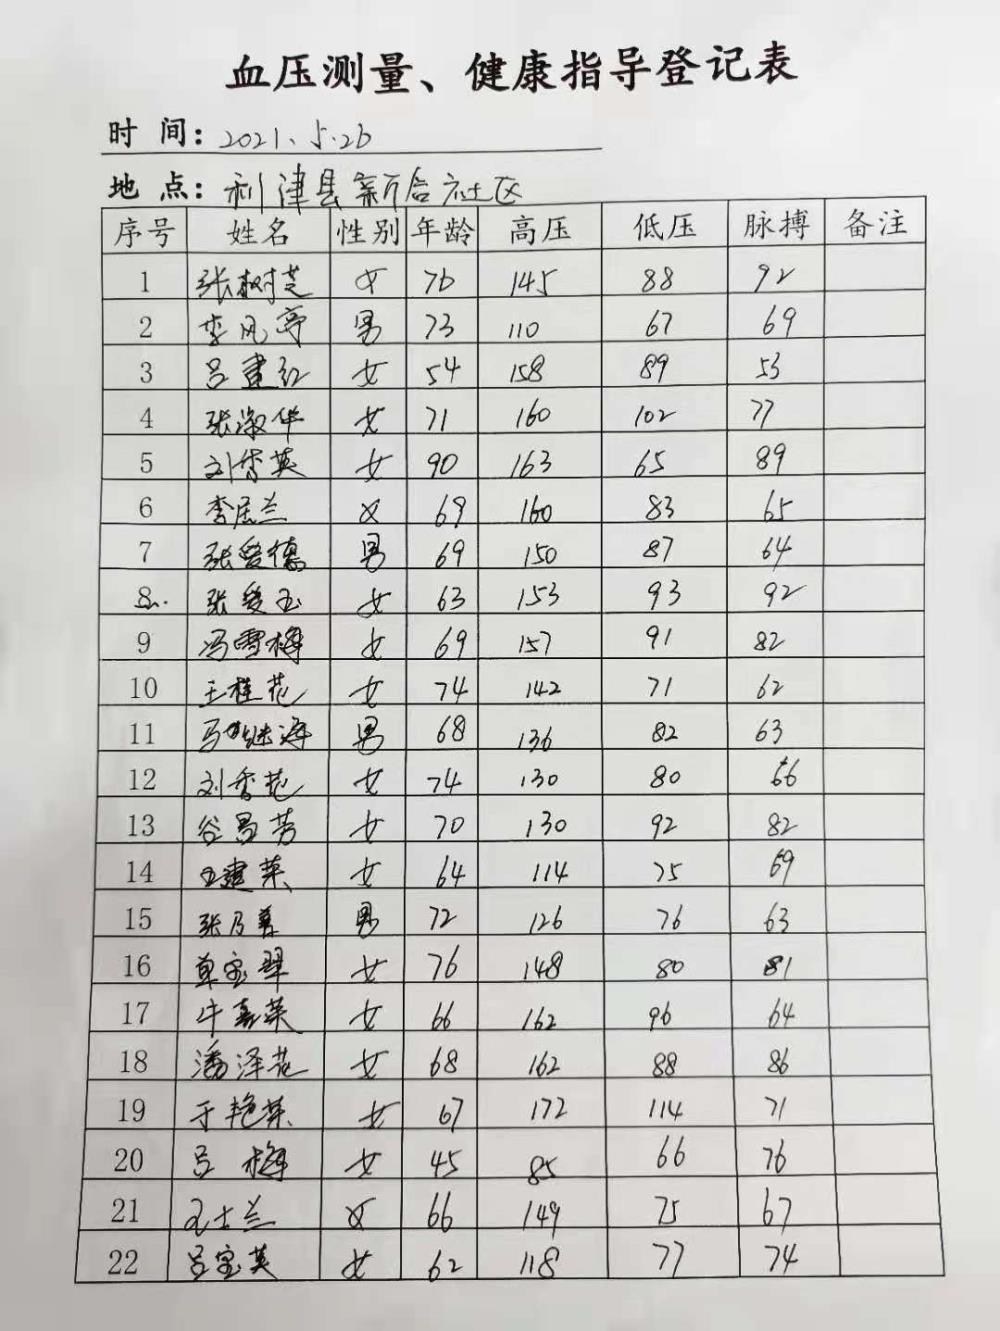 血压测量、健康指导登记表
时 间：2021.5.26
地 点：利津县新合社区
序号 姓名 性别 年龄 高压 低压 脉搏 备注
1 张树芝 女 76 145 88 92
2 李凤亭 男 73 110 67 69
3 吕建红 女 54 158 89 53
4 张淑华 女 71 160 102 77
5 刘香英 女 90 163 65 89
6 李居兰 女 69 160 83 65
7 张爱德 男 69 150 87 64
8 张爱玉 女 63 153 93 92
9 冯雪梅 女 69 157 91 82
10 王桂花 女 74 142 71 62
11 马继海 男 68 136 82 63
12 刘香花 女 74 130 80 66
13 谷昌芳 女 70 130 92 82
14 王建英 女 64 114 75 69
15 张乃喜 男 72 126 76 63
16 宝翠 女 76 148 80 81
17 牛嘉英 女 66 162 96 64
18 潘泽花 女 68 162 88 86
19 于艳英 女 67 172 114 71
20 吕梅 女 45 85 66 76
21 士兰 女 66 149 75 67
22 吕宝英 女 62 118 77 74